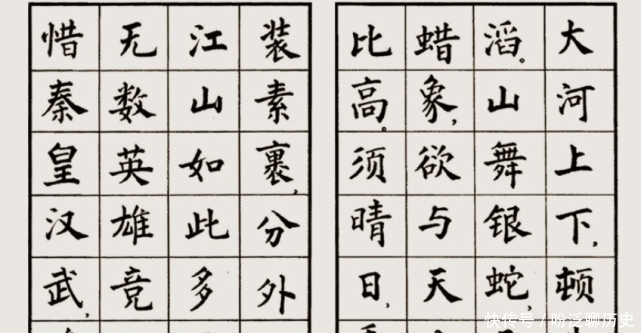 大河上下,顿
滔。山舞银蛇,
蜡象,欲与天
比高。须晴日,
装素裹,分外
江山如此多
无数英雄竞
惜秦皇汉武,
快传号 / 吩泛聊历史